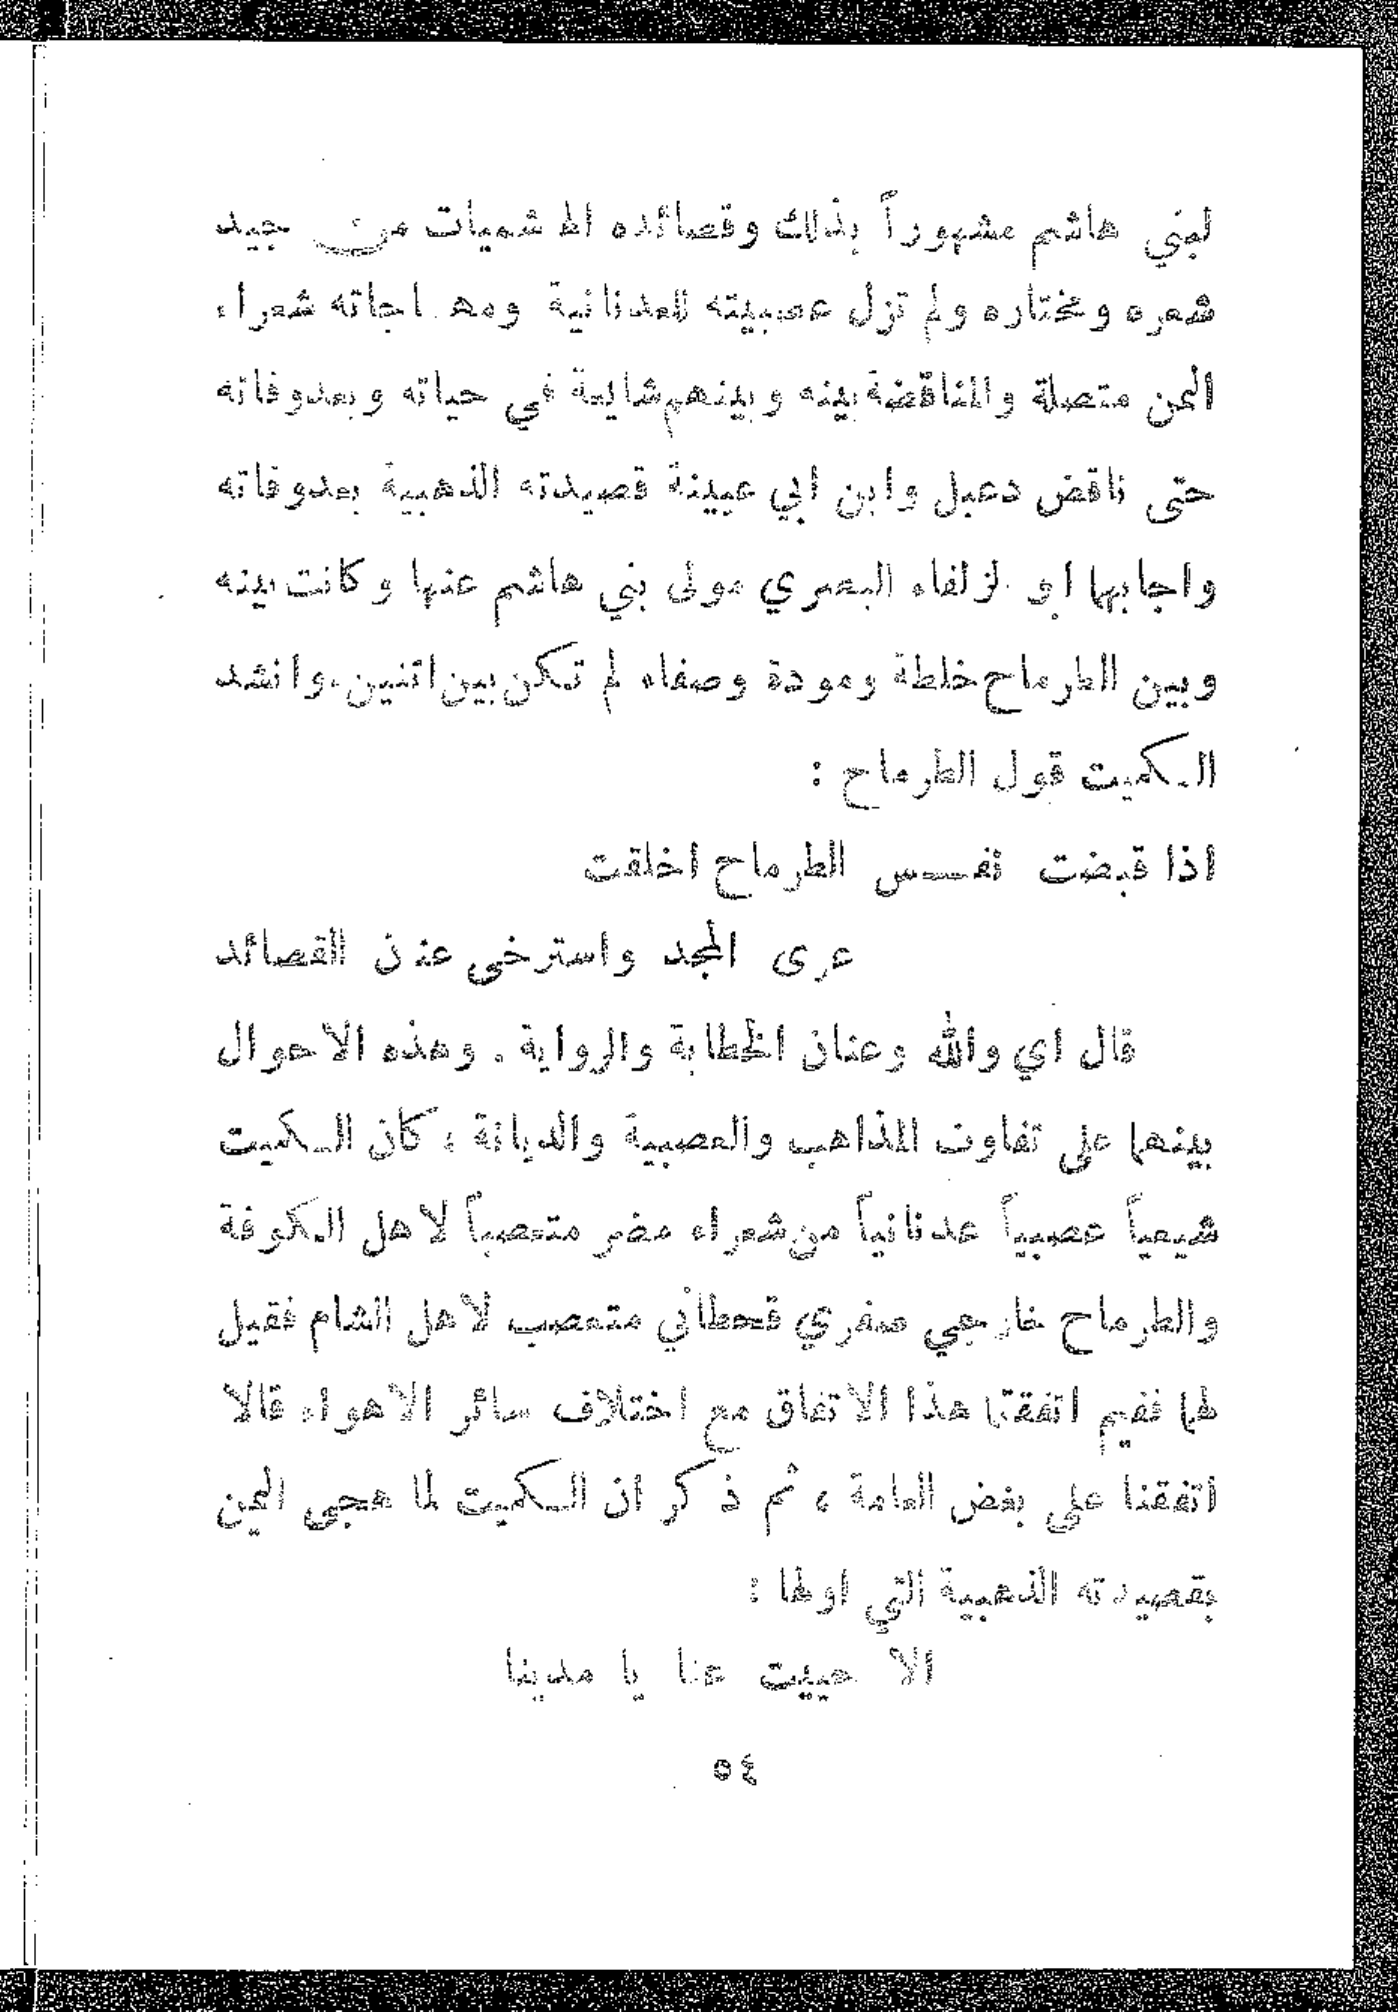 لبني هاشم مشهوراً بذلك وقصائده الها شميات من جيد
شعره ومختاره ولم تزل عصبيته للعدنانية ومها جاته شعراء
اليمن متصلة والمناقضة بينه وبينهم شايعة في حياته وبعدوفاته
حتى ناقض دعبل وابن ابي عيينة قصيدته الذهبية بعدوفاته
واجابهما ابو الزلفاء البصري مولى بني هاشم عنها وكانت بينه
وبين الطرماح خلطة ومودة وصفاء لم تكن بين اثنين. وانشد
الكميت قول الطرماح :
اذا قبضت نفس الطرماح اخلقت
عرى المجد واسترخى عنان القصائد
قال اي والله وعنان الخطابة والرواية . وهذه الاحوال
بينهما على تفاوت المذاهب والعصبية والديانة ، كان الكميت
شيعياً عصبياً عدنانياً من شعراء مضر متعصباً لاهل الكوفة
والطرماح خارجي صفري قحطاني متعصب لاهل الشام فقيل
لهما ففيم اتفقتما هذا الاتفاق مع اختلاف سائر الاهواء قالا
اتفقنا على بغض العامة ، ثم ذكر ان الكميت لما هجى اليمن
بقصيدته الذهبية التي اولها :
الا حييت عنا يا مدينا
٥٤